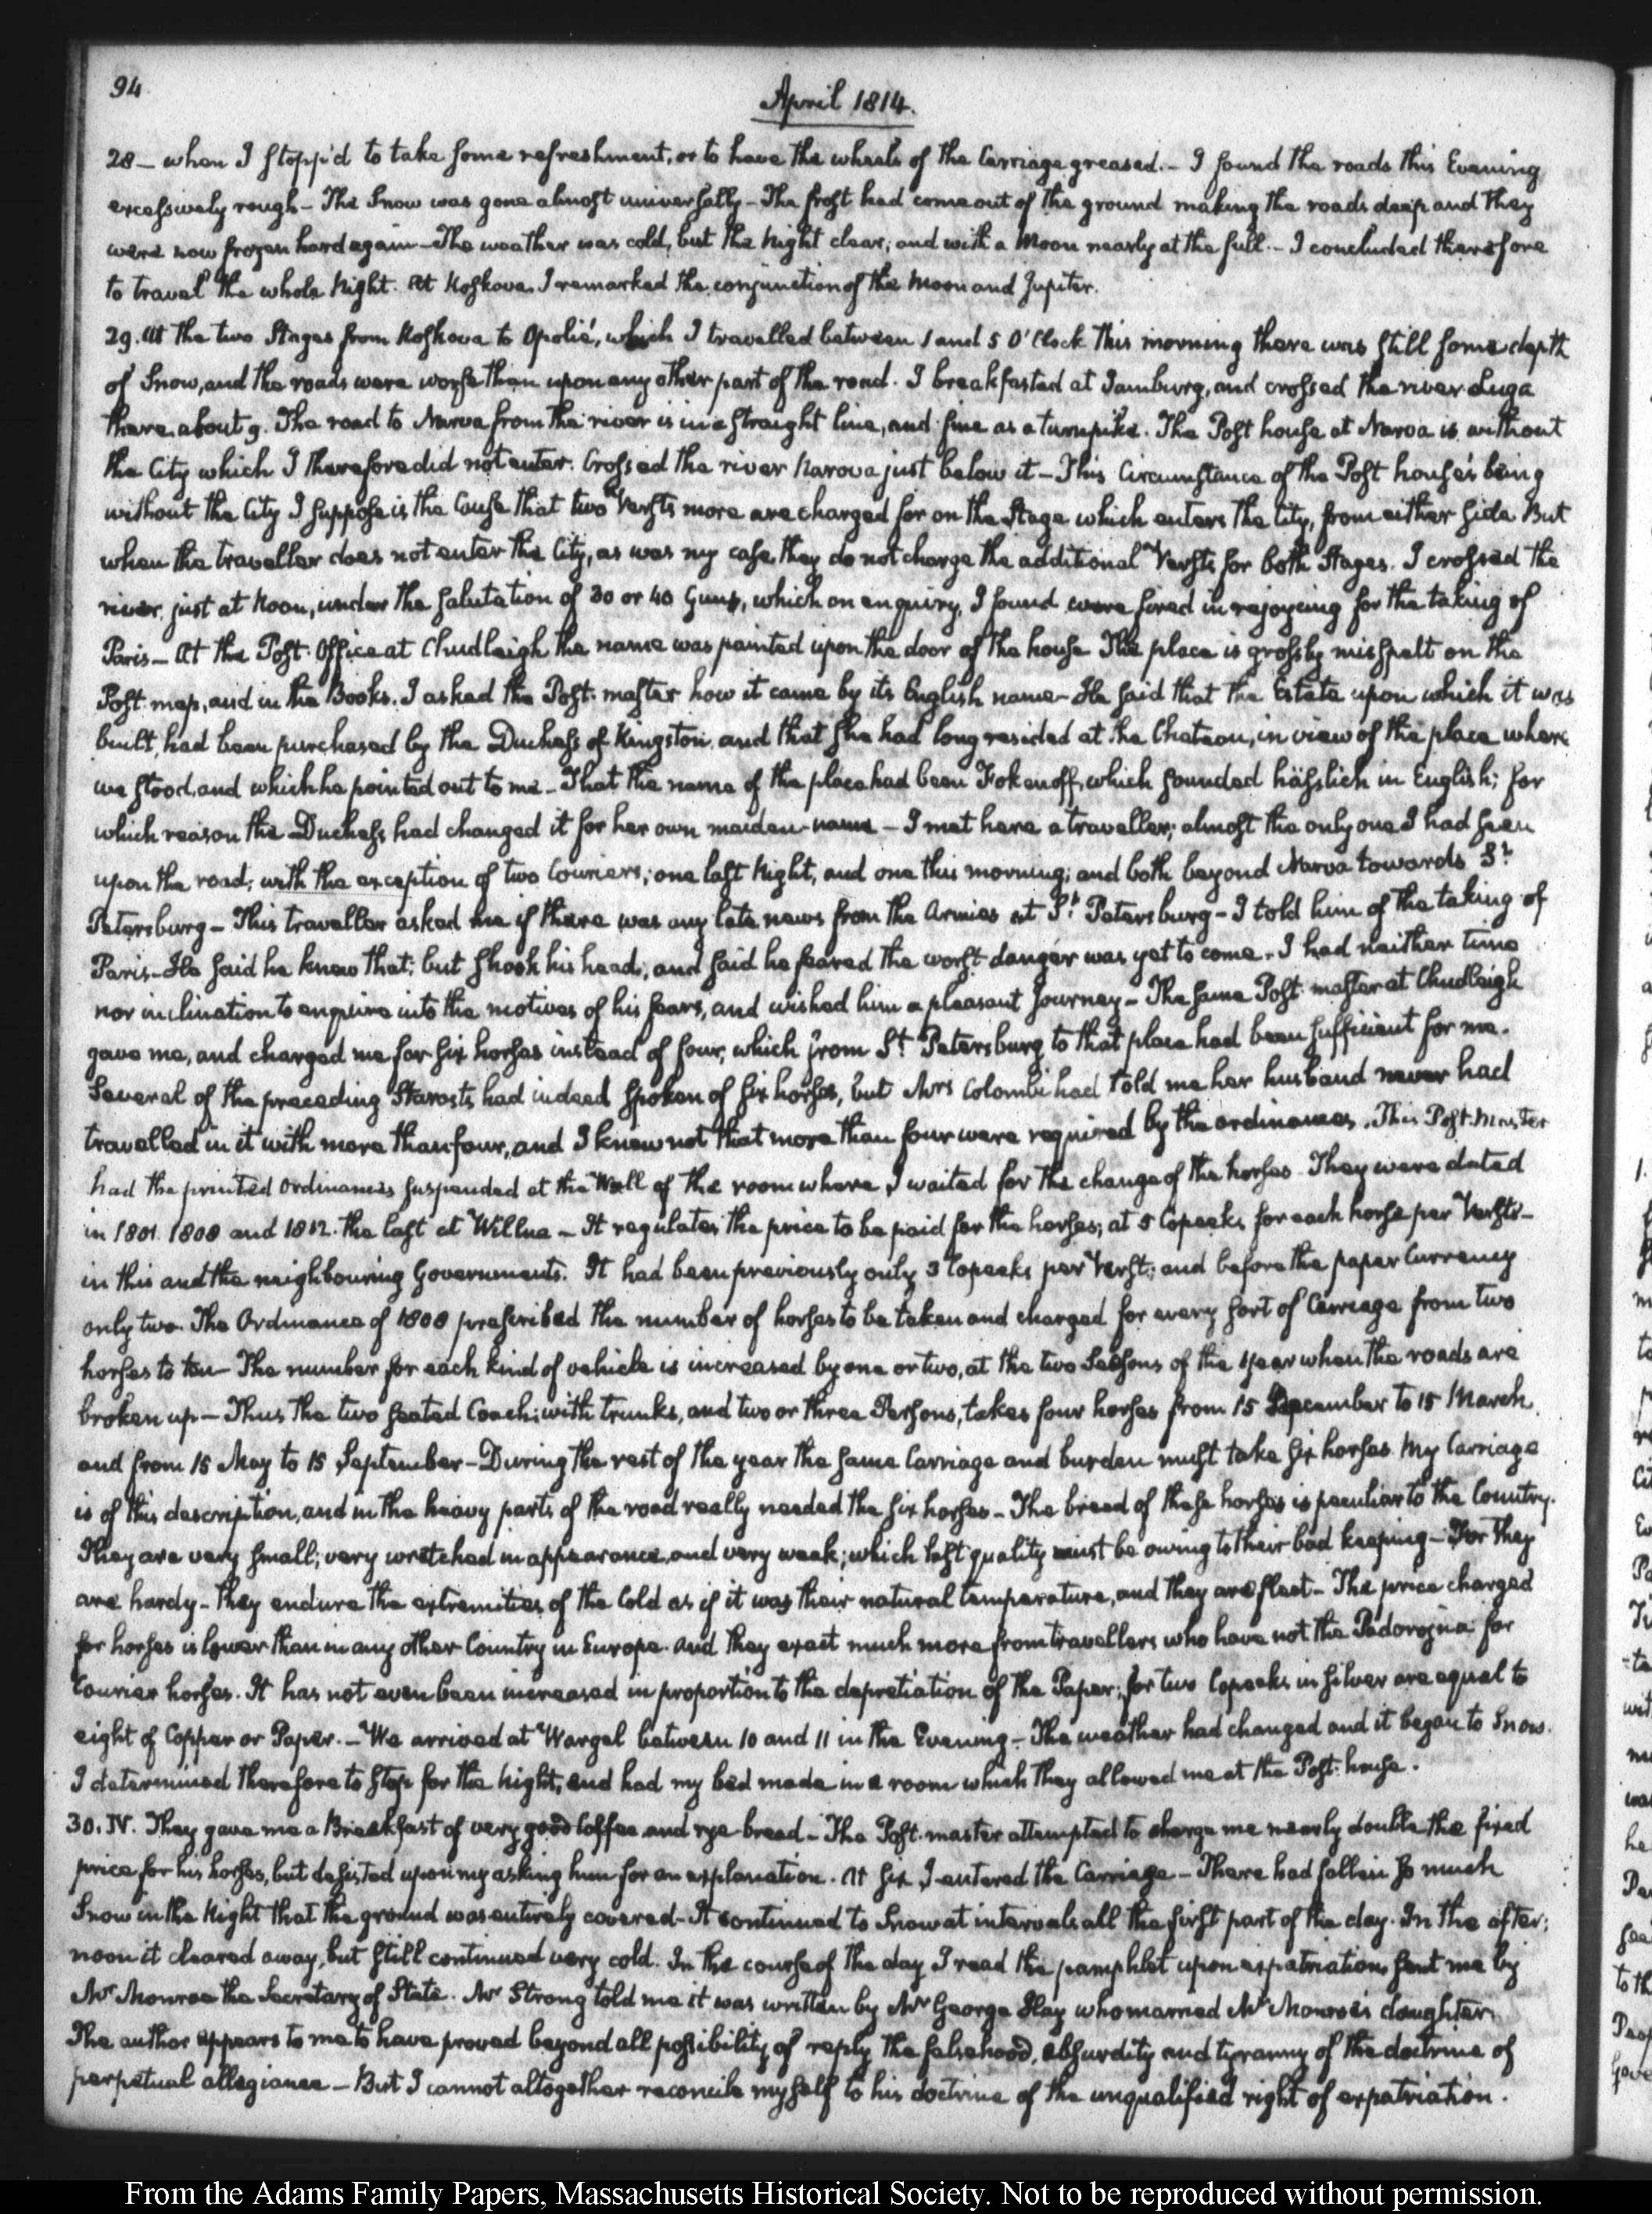 94
April 1814.
28 — when I stopp'd to take some refreshment, or to have the wheels of the Carriage greased. – I found the roads this Evening
excessively rough – The Snow was gone almost universally – The frost had come out of the ground making the roads deep and they
were now frozen hard again – The weather was cold, but the Night clear, and with a Moon nearly at the full. – I concluded therefore
to travel the whole Night. At Koskova I remarked the conjunction of the Moon and Jupiter.
29. At the two Stages from Koskova to Opolié, which I travelled between 1 and 5 O'Clock this morning there was still some depth
of Snow, and the roads were worse than upon any other part of the road. I breakfasted at Jamburg, and crossed the river Luga
there about 9. The road to Narva from the river is in a straight line, and fine as a turnpike. The Post house at Narva is without
the City which I therefore did not enter. Crossed the river Narova just below it – This Circumstance of the Post house's being
without the City I suppose is the Cause that two Versts more are charged for on the Stage which enters the City, from either side But
when the traveller does not enter the City, as was my case, they do not charge the additional Versts for both Stages. I crossed the
river just at Noon, under the salutation of 30 or 40 Guns, which on enquiry, I found were fired in rejoycing for the taking of
Paris – At the Post-Office at Chudleigh the name was painted upon the door of the house The place is grossly misspelt on the
Post-map, and in the Books. I asked the Post-master how it came by its English name – He said that the Estate upon which it was
built, had been purchased by the Duchess of Kingston, and that she had long resided at the Chateau, in view of the place where
we stood, and which he pointed out to me – That the name of the place had been Fokenoff, which sounded hässlich in English; for
which reason the Duchess had changed it for her own maiden-name – I met here a traveller; almost the only one I had seen
upon the road; with the exception of two Couriers; one last Night, and one this morning; and both beyond Narva towards St
Petersburg – This traveller asked me if there was any late news from the Armies at St Petersburg – I told him of the taking of
Paris – He said he knew that; but shook his head; and said he feared the worst danger was yet to come. I had neither time
nor inclination to enquire into the motives of his fears, and wished him a pleasant Journey – The same Post-master at Chudleigh
gave me, and charged me for six horses instead of four, which from St Petersburg to that place had been sufficient for me.
Several of the preceding Starosts had indeed spoken of six horses, but Mrs Colombi had told me her husband never had
travelled in it with more than four, and I knew not that more than four were required by the ordinances. This Post-Master
had the printed ordinances suspended at the Wall of the room where I waited for the change of the horses – They were dated
in 1801. 1808 and 1812. the last at Willna – It regulates the price to be paid for the horses; at 5 Copeeks for each horse per Verst –
in this and the neighbouring Governments. It had been previously only 3 Copeeks per Verst; and before the paper Currency
only two. The Ordinance of 1808 prescribed the number of horses to be taken and charged for every sort of Carriage from two
horses to ten – The number for each kind of vehicle is increased by one or two, at the two Seasons of the year when the roads are
broken up – Thus the two seated Coach, with trunks, and two or three Persons, takes four horses from 15 December to 15 March,
and from 15 May to 15 September – During the rest of the year the same Carriage and burden must take six horses. My Carriage
is of this description, and in the heavy parts of the road really needed the six horses – The breed of these horses is peculiar to the Country.
They are very small; very wretched in appearance, and very weak; which last quality must be owing to their bad keeping – For they
are hardy – they endure the extremities of the Cold as if it was their natural temperature, and they are fleet – The price charged
for horses is lower than in any other Country in Europe. and they exact much more from travellers who have not the Padorojna for
Courier horses. It has not even been increased in proportion to the depretiation of the Paper; for two Copeeks in silver are equal to
eight of Copper or Paper. – We arrived at Wargel between 10 and 11 in the Evening – The weather had changed and it began to Snow.
I determined therefore to stop for the Night, and had my bed made in a room which they allowed me at the Post-house.
30. IV. They gave me a Breakfast of very good Coffee and rye-bread – The Post-master attempted to charge me nearly double the fixed
price for his horses, but desisted upon my asking him for an explanation. At six I entered the Carriage – There had fallen so much
Snow in the Night that the ground was entirely covered – It continued to Snow at intervals all the first part of the day. In the after-
noon it cleared away, but still continued very cold. In the course of the day I read the pamphlet upon expatriation, sent me by
Mr Monroe the Secretary of State. Mr Strong told me it was written by Mr George Hay who married Mr Monroe's daughter.
The author appears to me to have proved beyond all possibility of reply the falsehood, absurdity and tyranny of the doctrine of
perpetual allegiance – But I cannot altogether reconcile myself to his doctrine of the unqualified right of expatriation.
From the Adams Family Papers, Massachusetts Historical Society. Not to be reproduced without permission.